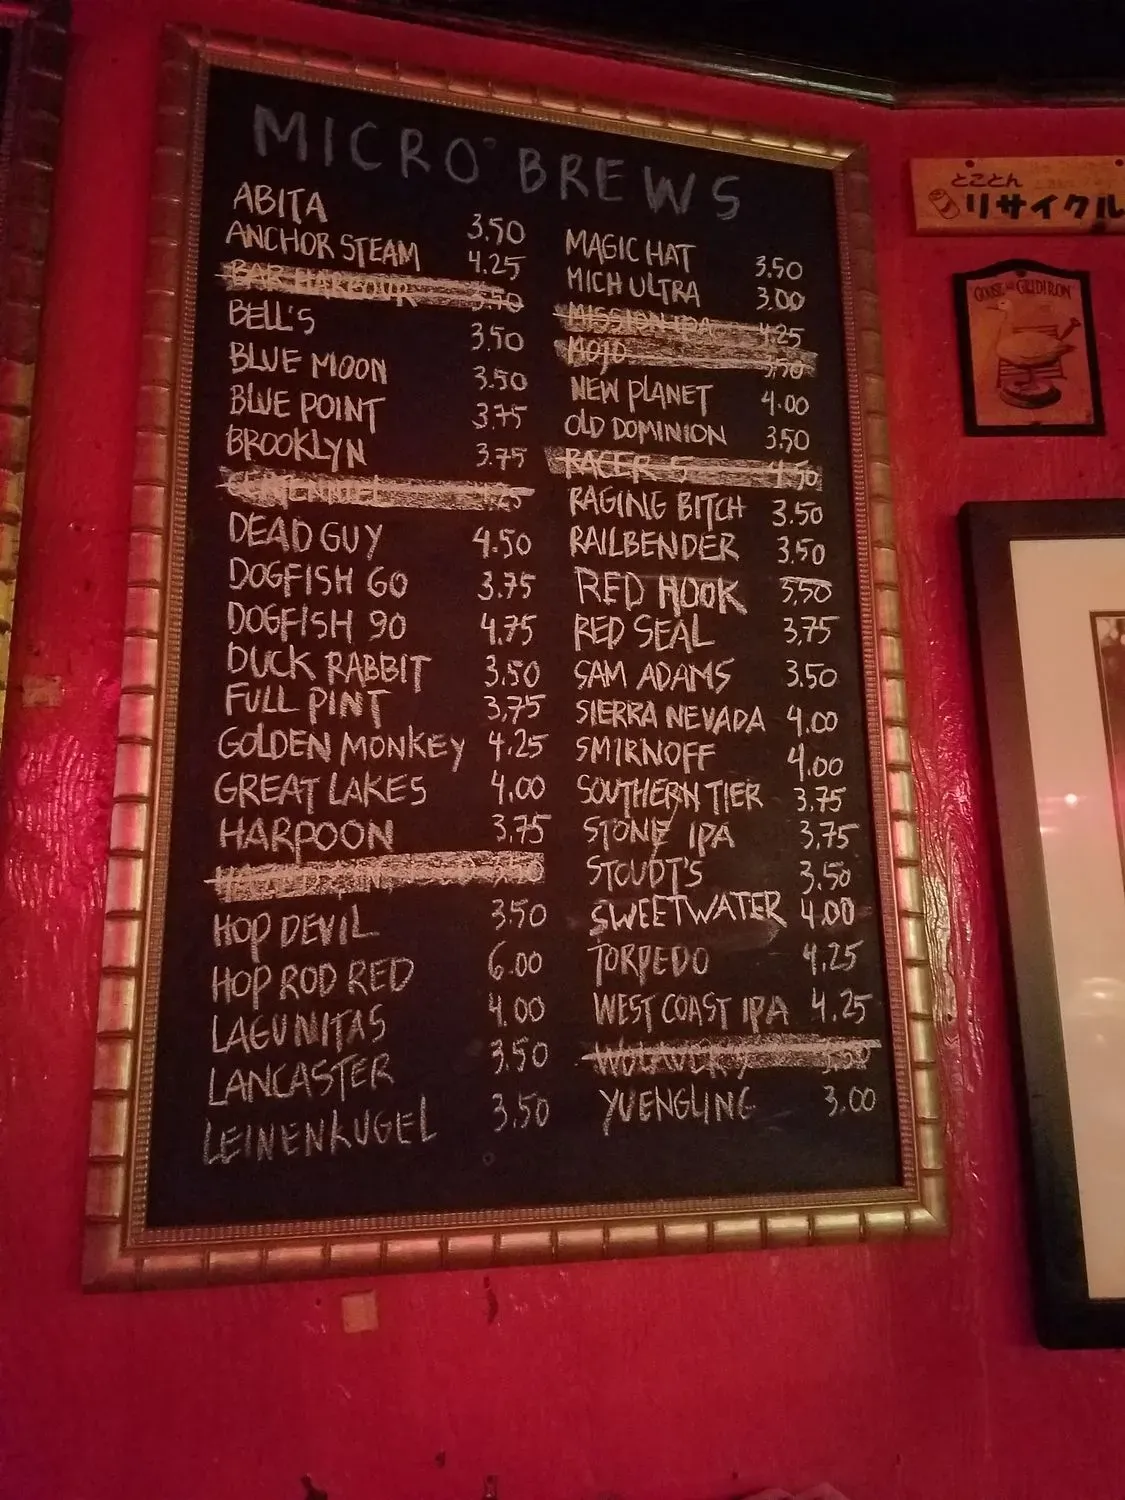 MICRO BREWS
ABITA 3.50
ANCHOR STEAM 4.25
BAR HARBOUR 3.50
BELL'S 3.50
BLUE MOON 3.50
BLUE POINT 3.75
BROOKLYN 3.75
4.25
DEAD GUY 4.50
DOGFISH 60 3.75
DOGFISH 90 4.75
DUCK RABBIT 3.50
FULL PINT 3.75
GOLDEN MONKEY 4.25
GREAT LAKES 4.00
HARPOON 3.75
HOP DEVIL 3.50
HOP ROD RED 6.00
LAGUNITAS 4.00
LANCASTER 3.50
LEINENKUGEL 3.50
MAGIC HAT 3.50
MICH ULTRA 3.00
MISSION IPA 4.25
MOJO 3.50
NEW PLANET 4.00
OLD DOMINION 3.50
RACER 5 4.50
RAGING BITCH 3.50
RAILBENDER 3.50
RED HOOK 5.50
RED SEAL 3.75
SAM ADAMS 3.50
SIERRA NEVADA 4.00
SMIRNOFF 4.00
SOUTHERN TIER 3.75
STONE IPA 3.75
STOUDT'S 3.50
SWEETWATER 4.00
TORPEDO 4.25
WEST COAST IPA 4.25
WOLAVER'S 3.50
YUENGLING 3.00
とことん
リサイクル
GOOSE AND GRIDIRON